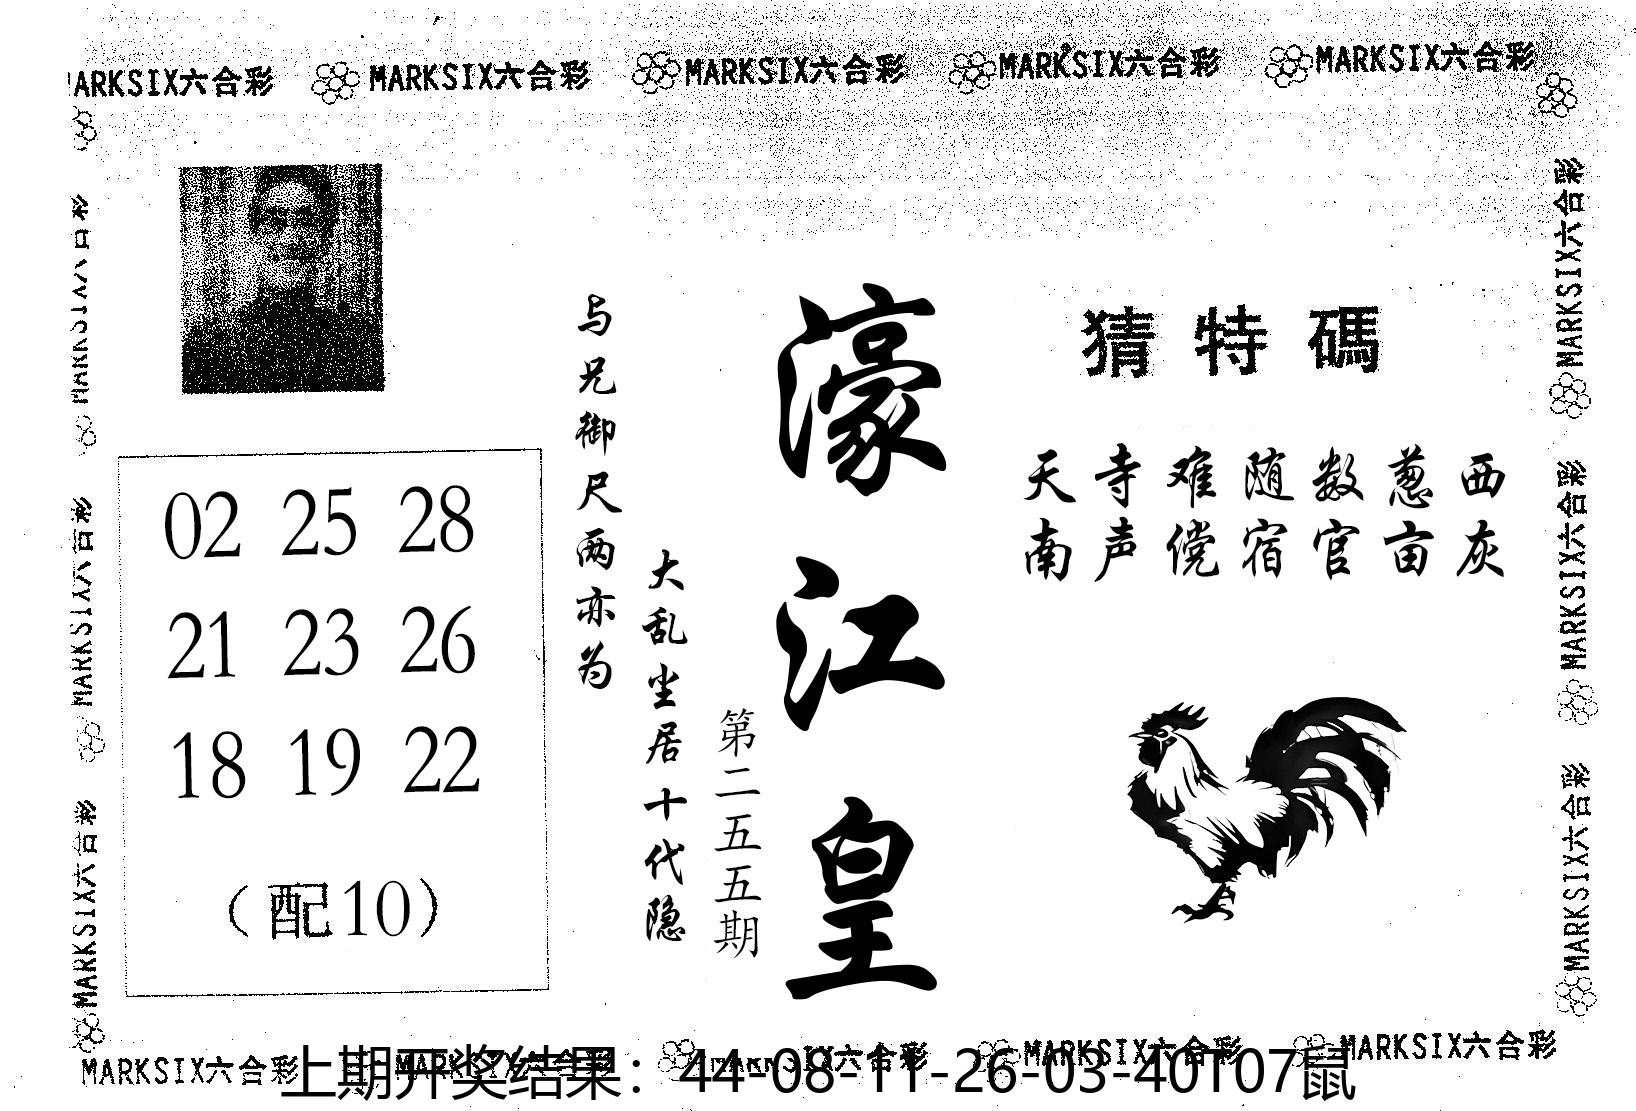 MARKSIX六合彩 MARKSIX六合彩 MARKSIX六合彩 MARKSIX六合彩 MARKSIX六合彩
MARKSIX六合彩 MARKSIX六合彩 MARKSIX六合彩
猜特碼
天寺难随数葱西
南声傥宿官亩灰
濠江皇
第二五五期
大乱坐居十代隐
与兄御尺两亦为
02 25 28
21 23 26
18 19 22
（配10）
MARKSIX六合彩 MARKSIX六合彩 MARKSIX六合彩
MARKSIX六合彩 MARKSIX六合彩 MARKSIX六合彩 MARKSIX六合彩 MARKSIX六合彩
上期开奖结果：44-08-11-26-03-40T07鼠